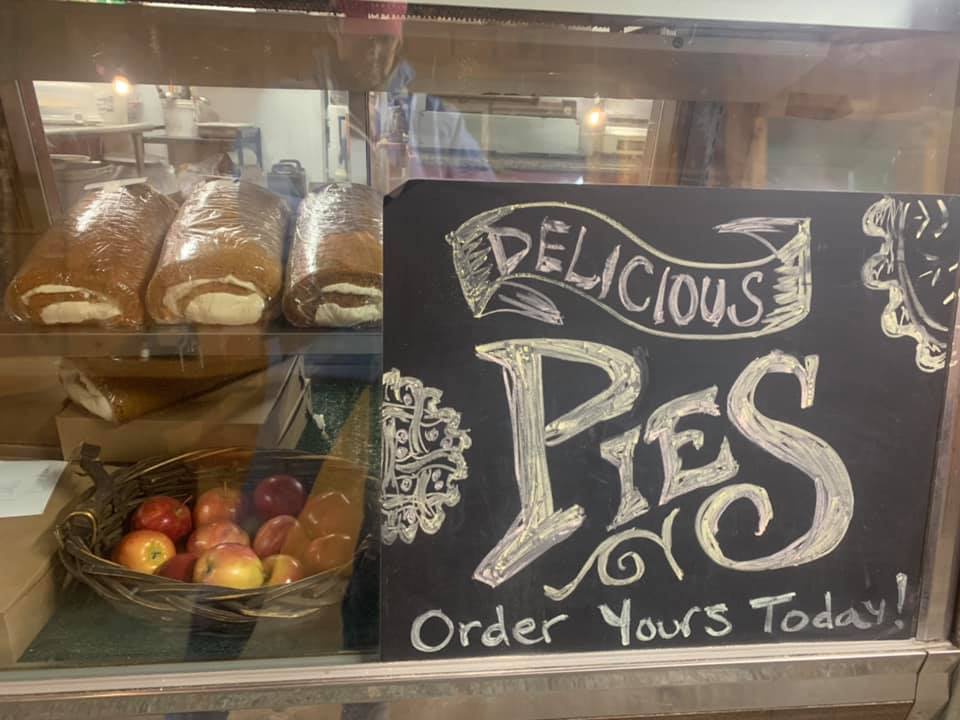 DELICIOUS
PIES
Order Yours Today!